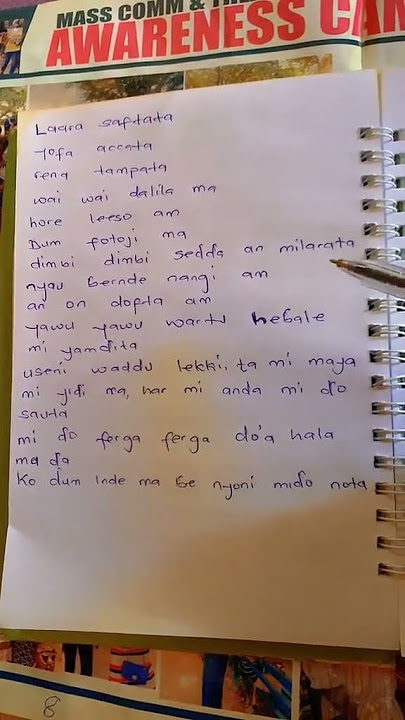 MASS COMM & THE
AWARENESS CAM
Laara saftata
Yofa accata
rena tampata
wai wai dalila ma
hore leeso am
Dum fotoji ma
dimbi dimbi sedda an milarata
nyau bernde nangi am
an on dopta am
yawu yawu wartu hebale
mi yamdita
useni waddu lekki, ta mi maya
mi yidi ma, har mi anda mi do
sauta
mi do ferga ferga do'a hala
ma da
ko dum inde ma be nyoni mido nota
8